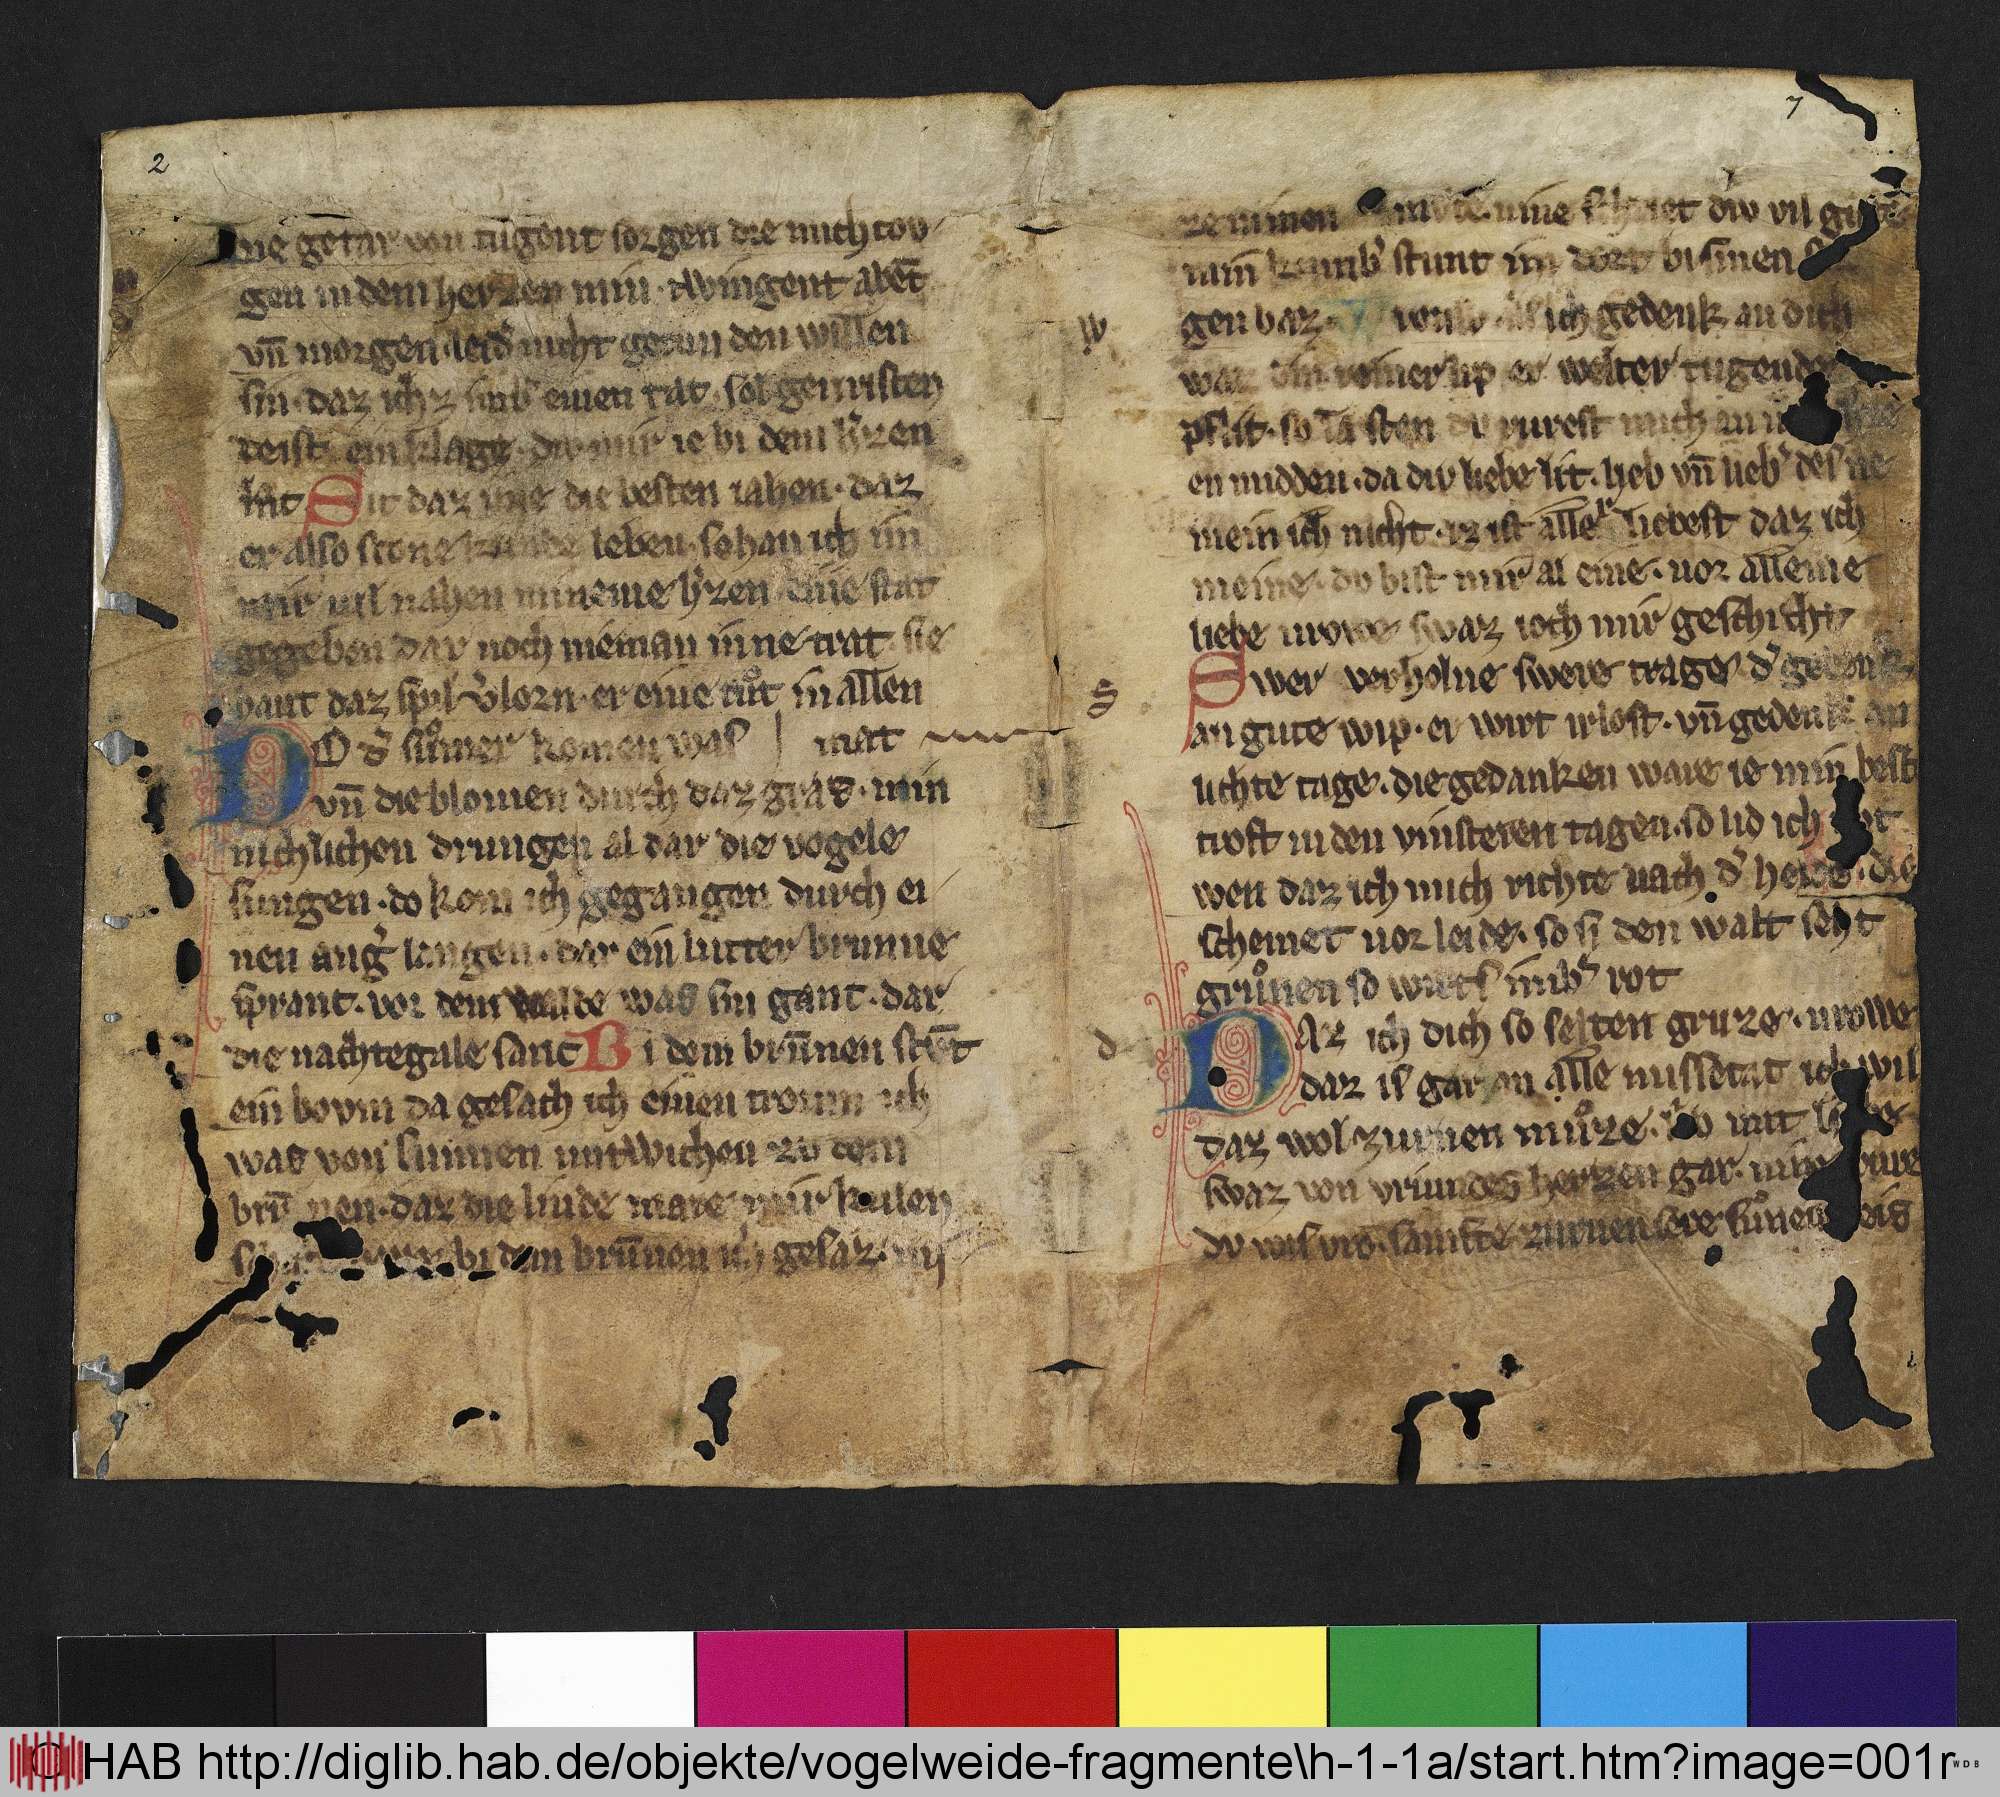 2
ne getar von tugent sorgen die mich tov
gen in dem herzen min · twingent abēt
vn̄ morgen · leid͛ nicht getun den willen
sin · daz ich z einen rat · sol gevristen
deist ein klage · div mir ie bi dem h͛zen
lac Sit daz die besten iahen · daz
er also scone kunde leben · so han ich im
mir vil nahen mineme h͛zen eine stat
gegeben dar noch nieman inne trat · sie
hant daz spil v͛lorn · er eine tůt in allen
DO d͛ sům̄er komen was | mat
vn̄ die blomen durch daz gras · min
nichlichen drungen al dar die vogele
sungen · do kom ich gegangen durch ei
nen ang͛ langen · dar ein lutter brunne
spranc · vor dem walde was sin ganc · dar
die nachtegale sanc Bi dem brūnen stv̄t
ein bovm da gesach ich einen troum ich
was von sunnen intwichen zv dem
brū nen · daz die linde mare mir kulen
bi dem brūnen ich gesaz · mi
7
vil gute
stunt im dort bi sinen
gen baz · ich gedenk an dich
waz din reiner lip er welter tugende
pfligt · so la sten du rurest mich
en midden · da div liebe lit · lieb vn̄ lieb͛ des ne
mein ich nicht · iz ist aller liebest daz ich
meine · dv bist mir al eine · vor alleme
liebe vrowe swaz ioch mir geschicht
Swer verholne swere trage d͛ gedenke
an gute wip · er wirt irlost · vn̄ gedenke an
lichte tage · die gedanken ware ie min best
trost in den vinsteren tagen · so lid ich not
wen daz ich mich richte nach d͛ heide · die
schemet vor leide · so si den walt seht
grůnen so wirts imb͛ rot
DAz ich dich so selten gruze · vrowe
daz is gar an alle missetat ich wil
daz wol zurnen můze · mit
swaz von vriundes herzen gar ·
dv wis vro · samfte zurnen sere sůnen
w
s
d
HAB http://diglib.hab.de/objekte/vogelweide-fragmente\h-1-1a/start.htm?image=001r
WDB